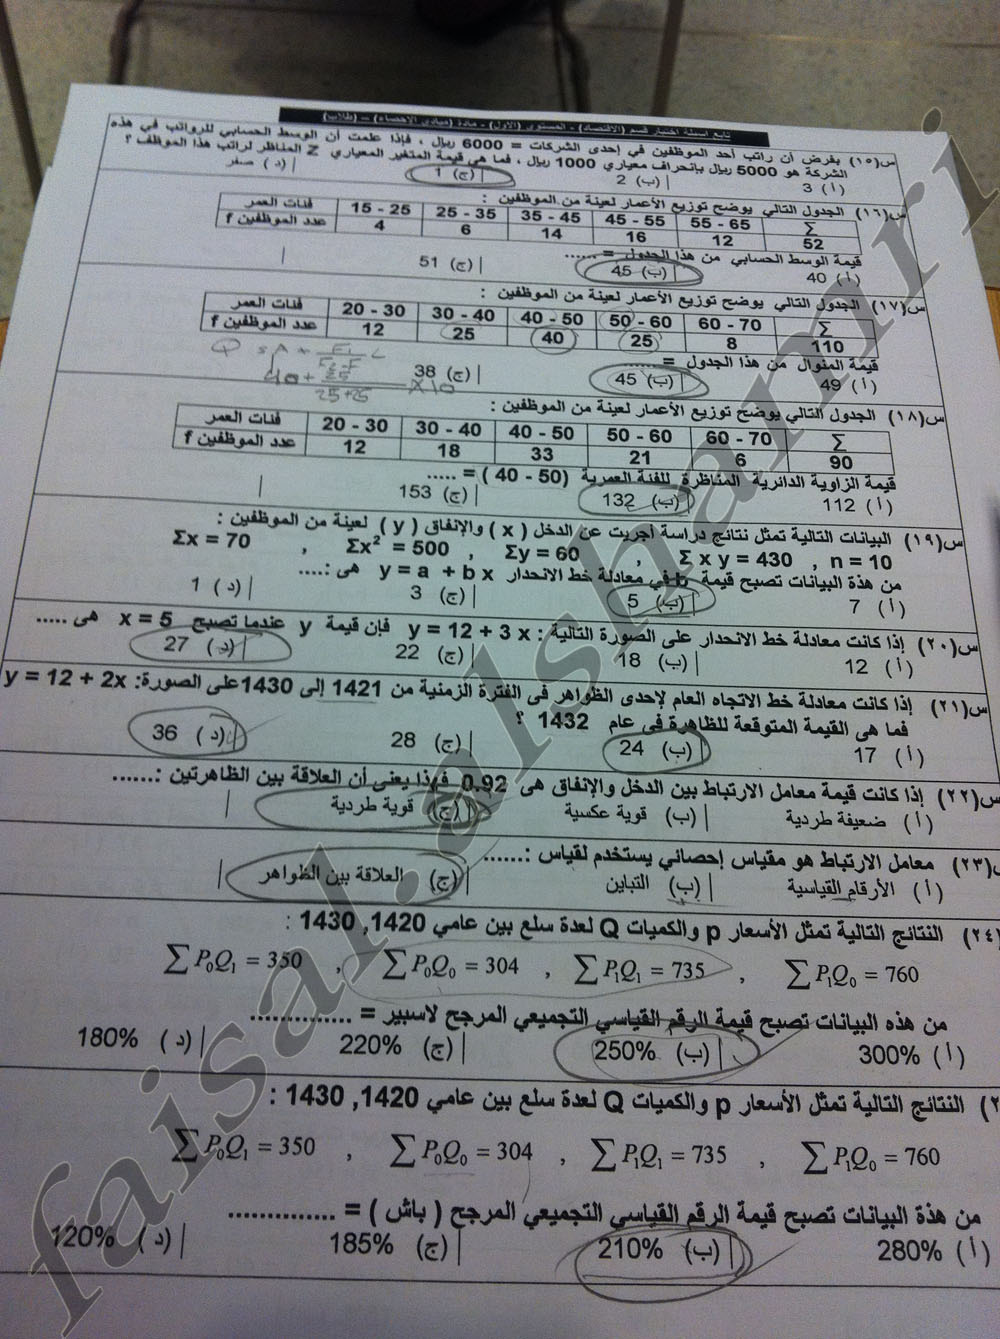 تابع اسئلة اختبار قسم (الاقتصاد) - المستوى (الاول) - مادة (مبادئ الإحصاء) - (طلاب)
س(١٥) بفرض أن راتب أحد الموظفين في إحدى الشركات = 6000 ريال ، فإذا علمت أن الوسط الحسابي للرواتب في هذه
الشركة هو 5000 ريال بانحراف معياري 1000 ريال ، فما هي قيمة المتغير المعياري Z المناظر لراتب هذا الموظف ؟
(أ) 3 (ب) 2 (ج) 1 (د) صفر
س(١٦) الجدول التالي يوضح توزيع الأعمار لعينة من الموظفين :
فئات العمر 15 - 25 25 - 35 35 - 45 45 - 55 55 - 65 Σ
عدد الموظفين f 4 6 14 16 12 52
قيمة الوسط الحسابي من هذا الجدول = ......
(أ) 40 (ب) 45 (ج) 51
س(١٧) الجدول التالي يوضح توزيع الأعمار لعينة من الموظفين :
فئات العمر 20 - 30 30 - 40 40 - 50 50 - 60 60 - 70 Σ
عدد الموظفين f 12 25 40 25 8 110
قيمة المنوال من هذا الجدول = ......
(أ) 49 (ب) 45 (ج) 38
س(١٨) الجدول التالي يوضح توزيع الأعمار لعينة من الموظفين :
فئات العمر 20 - 30 30 - 40 40 - 50 50 - 60 60 - 70 Σ
عدد الموظفين f 12 18 33 21 6 90
قيمة الزاوية الدائرية المناظرة للفئة العمرية (40 - 50) = .....
(أ) 112 (ب) 132 (ج) 153
س(١٩) البيانات التالية تمثل نتائج دراسة أجريت عن الدخل ( x ) والإنفاق ( y ) لعينة من الموظفين :
Σx = 70 , Σx² = 500 , Σy = 60 , Σ x y = 430 , n = 10
من هذة البيانات تصبح قيمة b في معادلة خط الانحدار y = a + b x هى :....
(أ) 7 (ب) 5 (ج) 3 (د) 1
س(٢٠) إذا كانت معادلة خط الانحدار على الصورة التالية : y = 12 + 3 x فإن قيمة y عندما تصبح x = 5 هى .....
(أ) 12 (ب) 18 (ج) 22 (د) 27
س(٢١) إذا كانت معادلة خط الاتجاه العام لإحدى الظواهر فى الفترة الزمنية من 1421 إلى 1430 على الصورة: y = 12 + 2x
فما هى القيمة المتوقعة للظاهرة فى عام 1432 ؟
(أ) 17 (ب) 24 (ج) 28 (د) 36
س(٢٢) إذا كانت قيمة معامل الارتباط بين الدخل والإنفاق هى 0.92 فهذا يعنى أن العلاقة بين الظاهرتين :......
(أ) ضعيفة طردية (ب) قوية عكسية (ج) قوية طردية
(٢٣) معامل الارتباط هو مقياس إحصائي يستخدم لقياس :......
(أ) الأرقام القياسية (ب) التباين (ج) العلاقة بين الظواهر
(٢٤) النتائج التالية تمثل الأسعار p والكميات Q لعدة سلع بين عامي 1420, 1430 :
∑P₀Q₁ = 350 , ∑P₀Q₀ = 304 , ∑P₁Q₁ = 735 , ∑P₁Q₀ = 760
من هذه البيانات تصبح قيمة الرقم القياسي التجميعي المرجح لاسبير = ..............
(أ) 300% (ب) 250% (ج) 220% (د) 180%
النتائج التالية تمثل الأسعار p والكميات Q لعدة سلع بين عامي 1420, 1430 :
∑P₀Q₁ = 350 , ∑P₀Q₀ = 304 , ∑P₁Q₁ = 735 , ∑P₁Q₀ = 760
من هذة البيانات تصبح قيمة الرقم القياسي التجميعي المرجح ( باش ) = ..............
(أ) 280% (ب) 210% (ج) 185% (د) 120%
faisal.alshamri